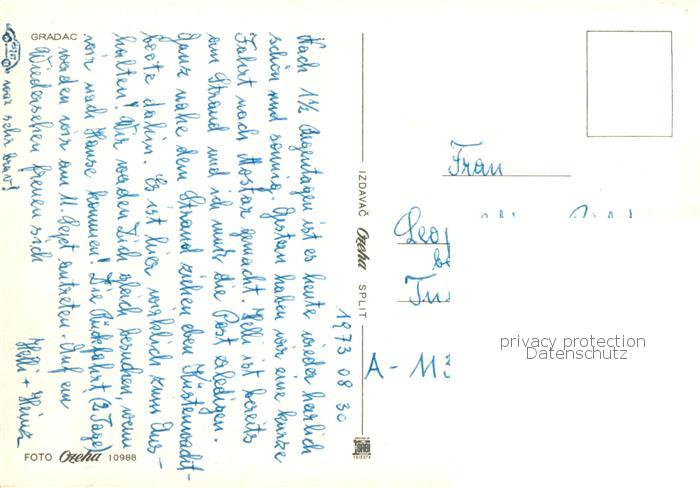 GRADAC
Nach 1½ Regentagen ist es heute wieder herrlich
schön und sonnig. Gestern haben wir eine kurze
Fahrt nach Mostar gemacht. Helli ist bereits
am Strand und ich muß die Post erledigen.
Ganz nahe dem Strand ziehen eben Küstenwacht-
boote dahin. Es ist hier wirklich zum Aus-
halten! Wir werden Dich gleich besuchen, wenn
wir nach Hause kommen! Die Rückfahrt (2 Tage)
werden wir am 11. Sept antreten. Auf ein
Wiedersehen freuen sich
Helli + Heinz
war sehr brav!
1973 08 30
FOTO Ozeha 10988
IZDAVAČ Ozeha SPLIT
Frau
A - 113
privacy protection
Datenschutz